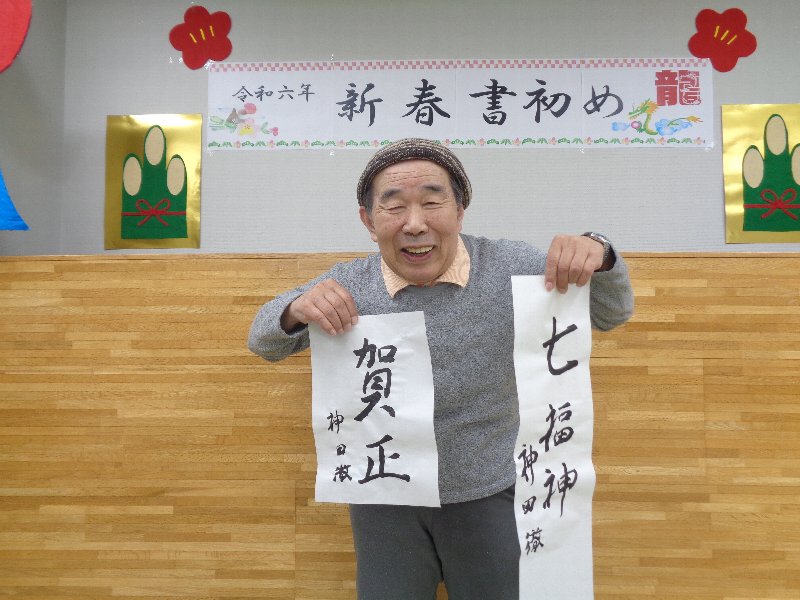 令和六年 新春書初め 龍
賀正
神田徹
七福神
神田徹